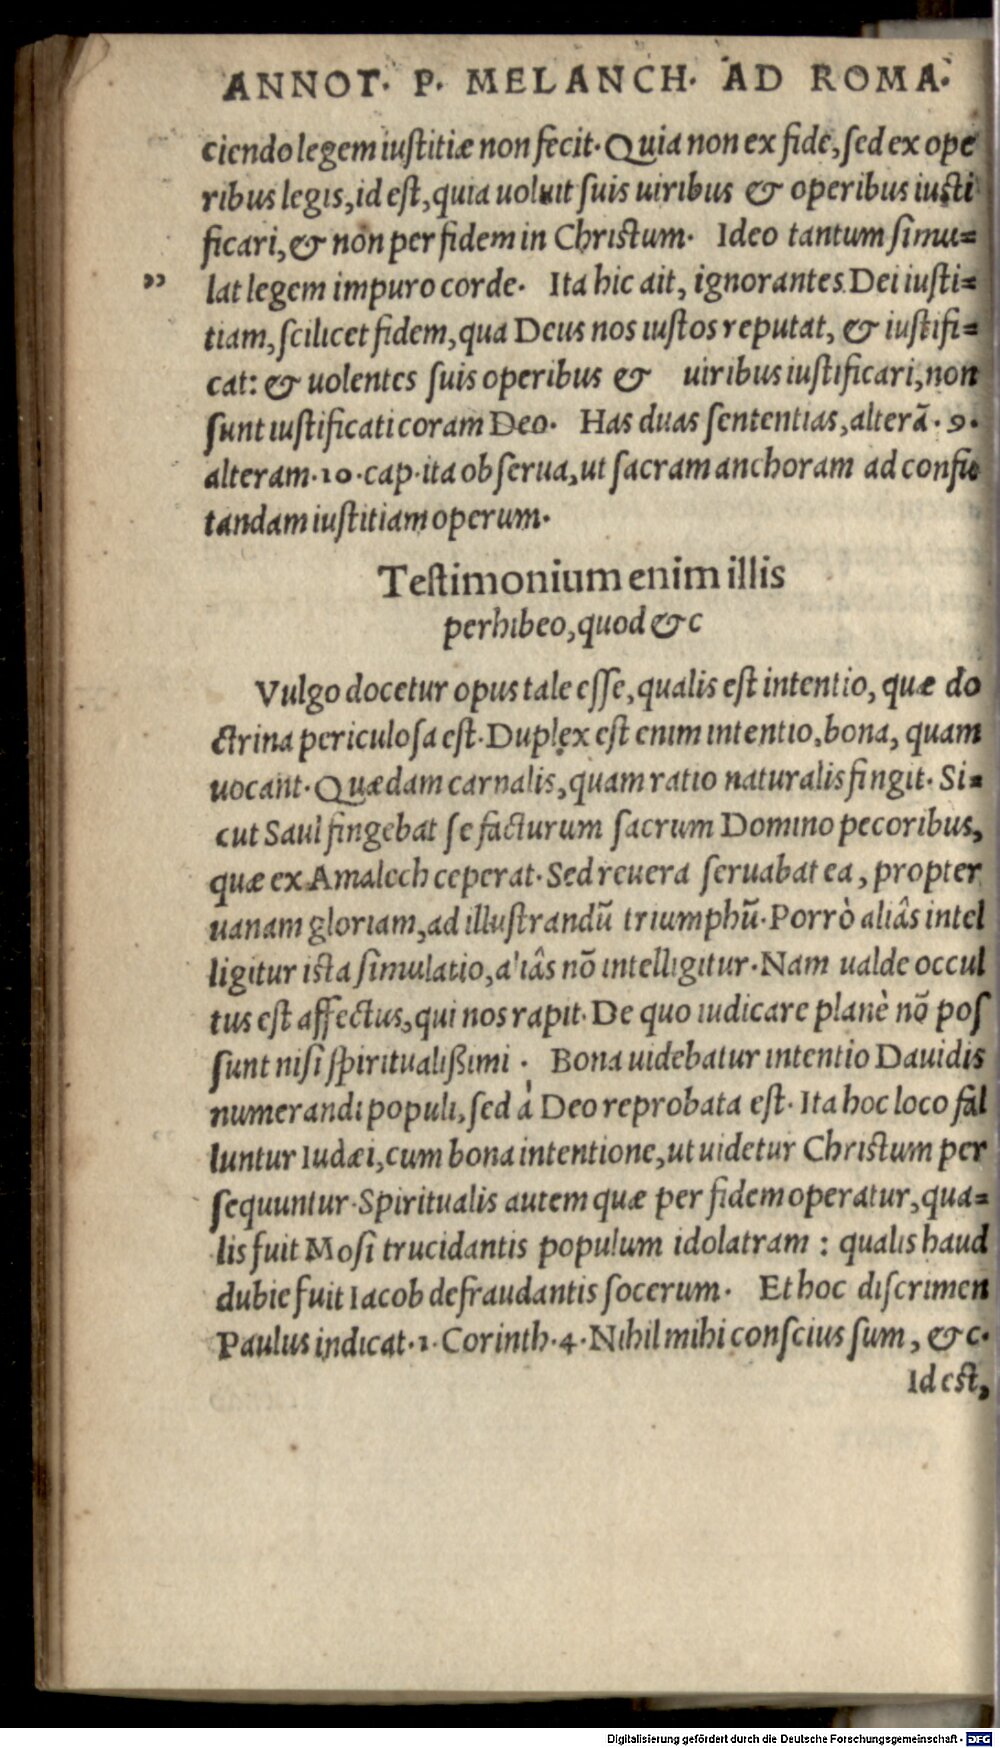 ANNOT. P. MELANCH. AD ROMA.
ciendo legem iustitiæ non fecit. Quia non ex fide, sed ex ope
ribus legis, id est, quia uoluit suis uiribus & operibus iusti
ficari, & non per fidem in Christum. Ideo tantum simu=
„ lat legem impuro corde. Ita hic ait, ignorantes Dei iusti=
tiam, scilicet fidem, qua Deus nos iustos reputat, & iustifi=
cat: & uolentes suis operibus & uiribus iustificari, non
sunt iustificati coram Deo. Has duas sententias, alterã .9.
alteram .10. cap. ita obserua, ut sacram anchoram ad confu
tandam iustitiam operum.
Testimonium enim illis
perhibeo, quod &c
Vulgo docetur opus tale esse, qualis est intentio, quæ do
ctrina periculosa est. Duplex est enim intentio, bona, quam
uocant. Quædam carnalis, quam ratio naturalis fingit. Si=
cut Saul fingebat se facturum sacrum Domino pecoribus,
quæ ex Amalech ceperat. Sed reuera seruabat ea, propter
uanam gloriam, ad illustrandũ triumphũ. Porrò aliâs intel
ligitur ista simulatio, aliâs nõ intelligitur. Nam ualde occul
tus est affectus, qui nos rapit. De quo iudicare planè nõ pos
sunt nisi spiritualißimi. Bona uidebatur intentio Dauidis
numerandi populi, sed à Deo reprobata est. Ita hoc loco fal
luntur Iudæi, cum bona intentione, ut uidetur Christum per
sequuntur. Spiritualis autem quæ per fidem operatur, qua=
lis fuit Mosi trucidantis populum idolatram : qualis haud
dubie fuit Iacob defraudantis socerum. Et hoc discrimen
Paulus indicat .1. Corinth. 4. Nihil mihi conscius sum, &c.
Id est,
Digitalisierung gefördert durch die Deutsche Forschungsgemeinschaft - DFG